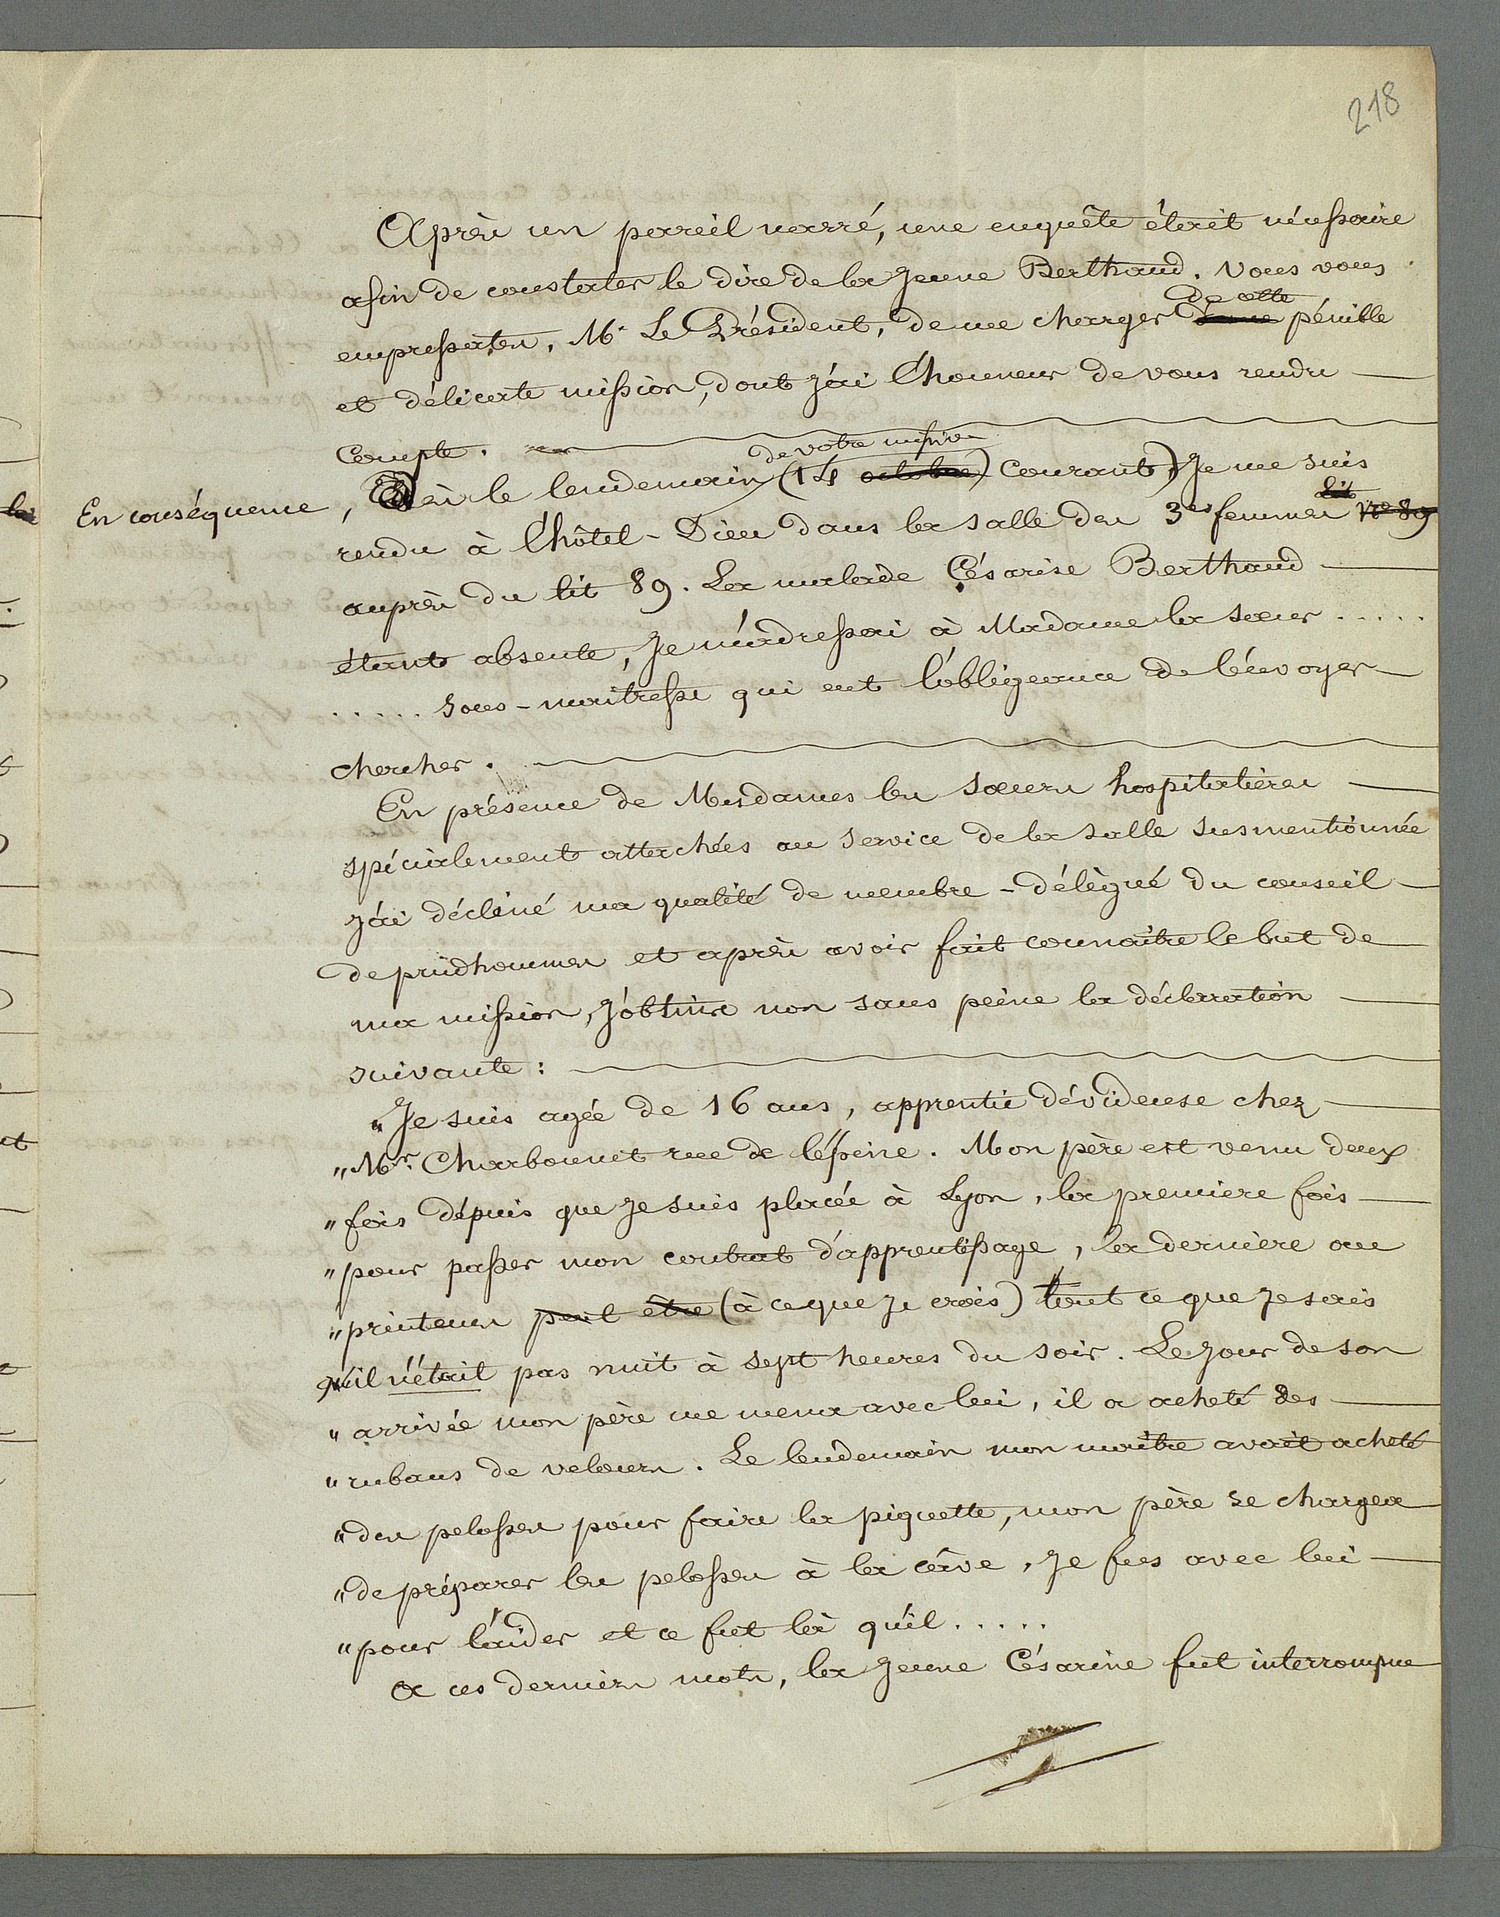 218
Après un pareil narré, une enquête était nécessaire
afin de constater le dire de la jeune Berthaud. Vous vous
de cette
empressates, Mr Le Président, de me charger d'une pénible
et délicate mission, dont j'ai l'honneur de vous rendre
compte.
de votre missive
En conséquence, Dès le lendemain (14 octobre) courant, Je me suis
lit
rendu à l'hôtel-Dieu dans la salle des 3es femmes No 89
auprès du lit 89. La malade Césarise Berthaud
étant absente, Je m'adressai à Madame la sœur .....
..... sous-maitresse qui eut l'obligeance de l'envoyer
chercher.
En présence de Mesdames les sœurs hospitalières
spécialement attachées au service de la salle susmentionnée
j'ai décliné ma qualité de membre-délégué du conseil
de prudhommes et après avoir fait connaître le but de
ma mission, j'obtins non sans peine la déclaration
suivante :
"Je suis agée de 16 ans, apprentie dévideuse chez
"Mr Charbonnet rue de l'épine. Mon père est venu deux
"fois dépuis que je suis placée à Lyon, la premiere fois
"pour passer mon contrat d'apprentissage, la derniere au
"printems peut être (à ce que je crois) tout ce que je sais
qu'il n'était pas nuit à sept heures du soir. Le jour de son
"arrivée mon père me mena avec lui, il a acheté des
"rubans de velours. Le lendemain mon maître avait acheté
"des pelosses pour faire la piquette, mon père se chargea
"de préparer les pelosses à la câve, je fus avec lui
"pour l'aider et ce fut là qu'il .....
A ces derniers mots, la jeune Césarine fut interrompue